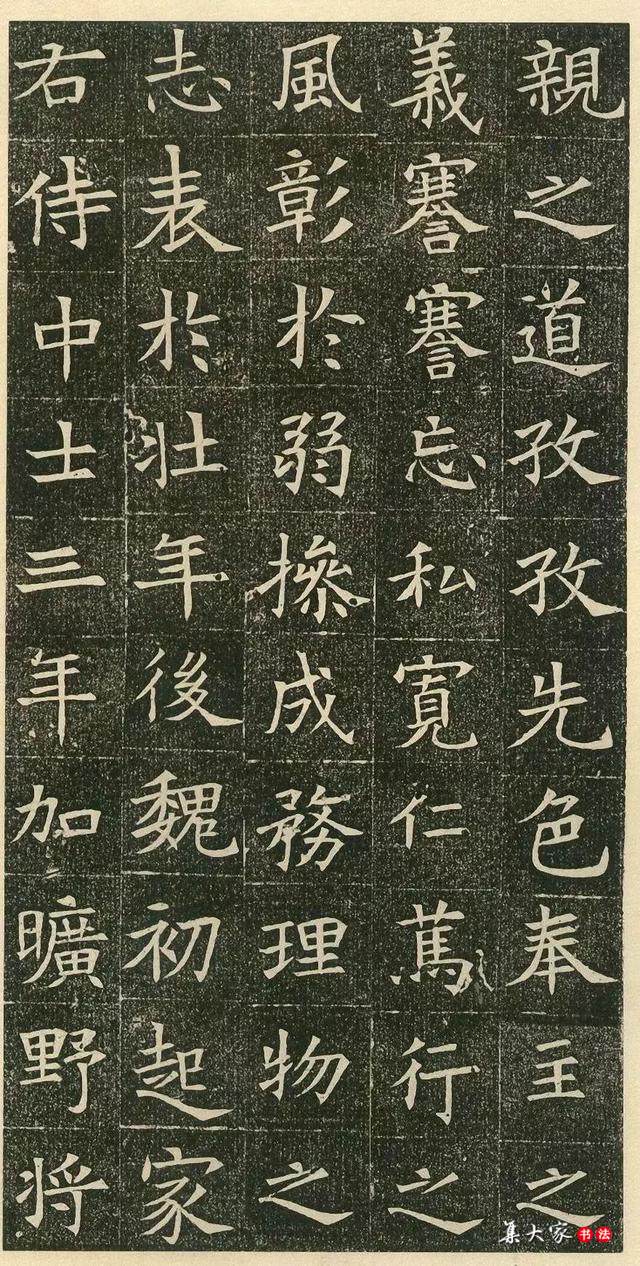 親之道孜孜先色奉主之
義謇謇忘私寬仁篤行之
風彰於弱操成務理物之
志表於壯年後魏初起家
右侍中士三年加曠野將
集大家书法